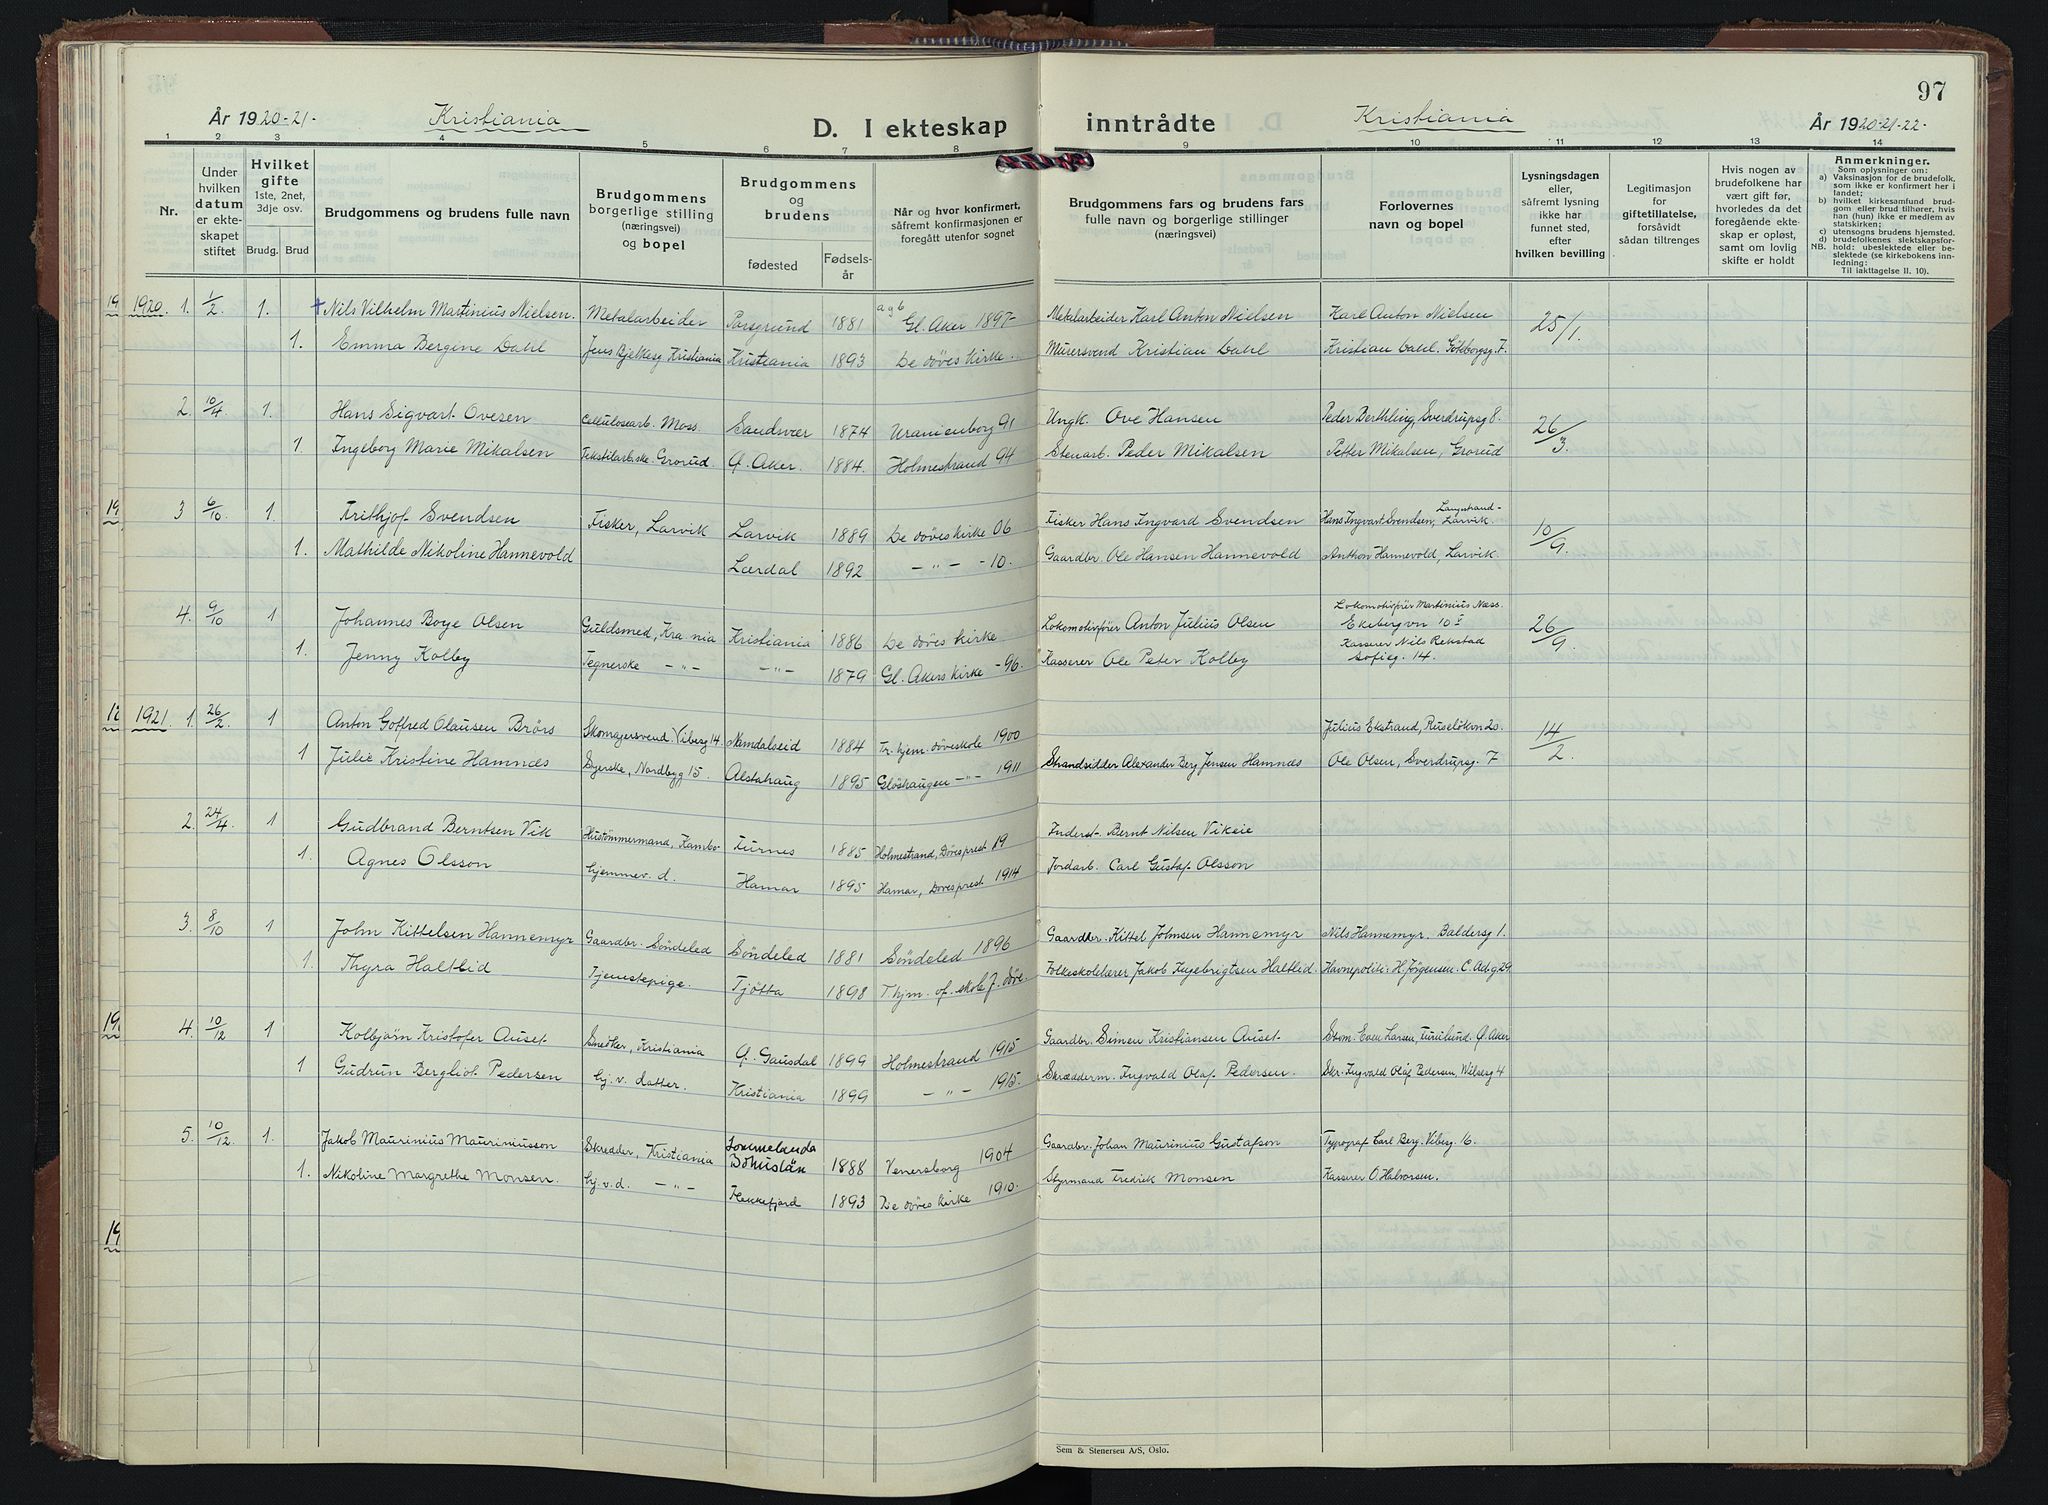 97
År 1920-21-
Kristiania
D. I ekteskap
inntrådte
Kristiania
År 1920-21-22-
1 2 3 4 5 6 7 8 9 10 11 12 13 14
Nr.
Under hvilken datum er ekteskapet stiftet
Hvilket gifte 1ste, 2net, 3dje osv.
Brudg. Brud
Brudgommens og brudens fulle navn
Brudgommens borgerlige stilling (næringsvei) og bopel
Brudgommens og brudens
fødested
Fødselsår
Når og hvor konfirmert, såfremt konfirmasjonen er foregått utenfor sognet
Brudgommens fars og brudens fars fulle navn og borgerlige stillinger (næringsvei)
Forlovernes navn og bopel
Lysningsdagen eller, såfremt lysning ikke har funnet sted, efter hvilken bevilling
Legitimasjon for giftetillatelse, forsåvidt sådan tiltrenges
Hvis nogen av brudefolkene har vært gift før, hvorledes da det foregående ekteskap er opløst, samt om lovlig skifte er holdt
Anmerkninger.
Som oplysninger om:
a) Vaksinasjon for de brudefolk, som ikke er konfirmert her i landet;
b) hvilket kirkesamfund brudgom eller brud tilhører, hvis han (hun) ikke er medlem av statskirken;
c) utensogns brudens hjemsted.
d) brudefolkenes slektskapsforhold: ubeslektede eller beslektede (se kirkebokens innledning:
NB.
Til iakttagelse II. 10).
1920. 1. 1/2 1. + Nils Vilhelm Martinius Nielsen. Metalarbeider Porsgrund 1881 Gl. Aker 1897 Metalarbeider Karl Anton Nielsen Karl Anton Nielsen 25/1.
1. Emma Bergine Dahl Jens Bjelkesg Kristiania Kristiania 1893 De døves kirke. Murersvend Kristian Dahl Kristian Dahl. Göteborgsg. 7.
2. 10/4 1. Hans Sigvart Ovesen Cellulosearb. Moss. Sandsvær 1874 Uranienborg 91 Ungk. Ove Hansen Peder Berthling, Sverdrupsg 8. 26/3.
1. Ingeborg Marie Mikalsen Tekstilarb.ske. Grorud. Ø. Aker. 1884. Holmestrand 94 Stenarb. Peder Mikalsen Petter Mikalsen, Grorud
3 6/10. 1. Frithjof Svendsen Fisker, Larvik Larvik 1889 De døves kirke 06 Fisker Hans Ingvard Svendsen Hans Ingvart Svendsen, Langestrand - Larvik. 10/9.
1. Mathilde Nikoline Hannevold Lardal 1892 — " — -10. Gaardbr. Ole Hansen Hannevold Anthon Hannevold, Larvik.
4. 9/10 1 Johannes Boye Olsen Guldsmed, Kra.nia Kristiania 1886 De døves kirke Lokomotivfører Anton Julius Olsen Lokomotivfører Martinius Næss. Ekebergvn 10 26/9.
1. Jenny Kolby Tegnerske — " — — " — 1879 Gl. Akers kirke -96. Kasserer Ole Peter Kolby Kasserer Nils Rekstad Sofieg. 14.
1921. 1. 26/2. 1 Anton Gotfred Olausen Brørs Skomagersvend. Viberg 14. Namdalseid 1884 Tr.hjem. døveskole 1900 Julius Ekstrand, Ruseløkvn 20. 14/2.
1 Julie Kristine Hamnæs Syerske, Nordbyg 15. Alstahaug 1895 Gløshaugen — " — 1911 Strandsidder Alexander Berg Jensen Hamnæs Ole Olsen, Sverdrupsg. 7
2. 24/4. 1 Gudbrand Berntsen Vik Hustømmermand, Kambo Furnes 1885 Holmestrand, Døves prest 19 Inderst. Bernt Nilsen Vikeie
1. Agnes Olsson Hjemmev. d. Hamar 1895 Hamar, Døves prest 1914 Jordarb. Carl Gustaf Olsson
3. 8/10 1 John Kittelsen Hannemyr Gaardbr. Søndeled Søndeled 1881 Søndeled 1896 Gaardbr. Kittel Johnsen Hannemyr Nils Hannemyr. Baldersg 1.
1. Thyra Haltlid Tjenestepige. Tjøtta 1898 T hjm. of. skole f. døve. Folkeskolelærer Jakob Ingebrigtsen Haltlid. Havnepoliti: H. Jørgensen. C. Ad.g 29
4. 10/12 1 Kolbjørn Kristofer Auset Snedker, Kristiania Ø. Gausdal 1899 Holmestrand 1915 Gaardbr. Simen Kristiansen Auset Even Larsen, Furulund. Ø. Aker
1 Gudrun Bergliot Pedersen Hj. v. datter. Kristiania 1899 — " — 1915. Skræddern. Ingvald Olaf Pedersen. Skr. Ingvald Olaf Pedersen, Wilsesg 4
5. 10/12. 1. Jakob Maurinius Mauriniusson Skredder, Kristiania Sommelanda Bohuslän 1888 Venersborg 1904 Gaardbr. Johan Maurinius Gustafson Typograf Carl Berg. Viberg 16.
1. Nikoline Margrethe Monsen. Hj.v.d. — " — Flekkefjord 1893 De døves kirke 1910. Styrmand Fredrik Monsen Kasserer O. Halvorsen.
Sem & Stenersen A/S, Oslo.